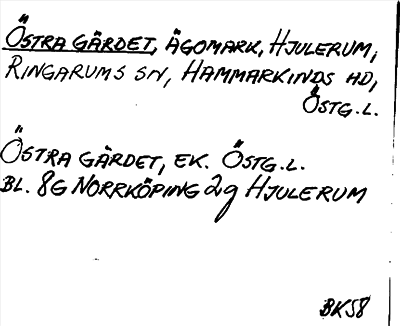 ÖSTRA GÄRDET, ÄGOMARK, HJULERUM,
RINGARUMS SN, HAMMARKINDS HD,
ÖSTG.L.
ÖSTRA GÄRDET, EK. ÖSTG.L.
BL. 8G NORRKÖPING 2g HJULERUM
BK58